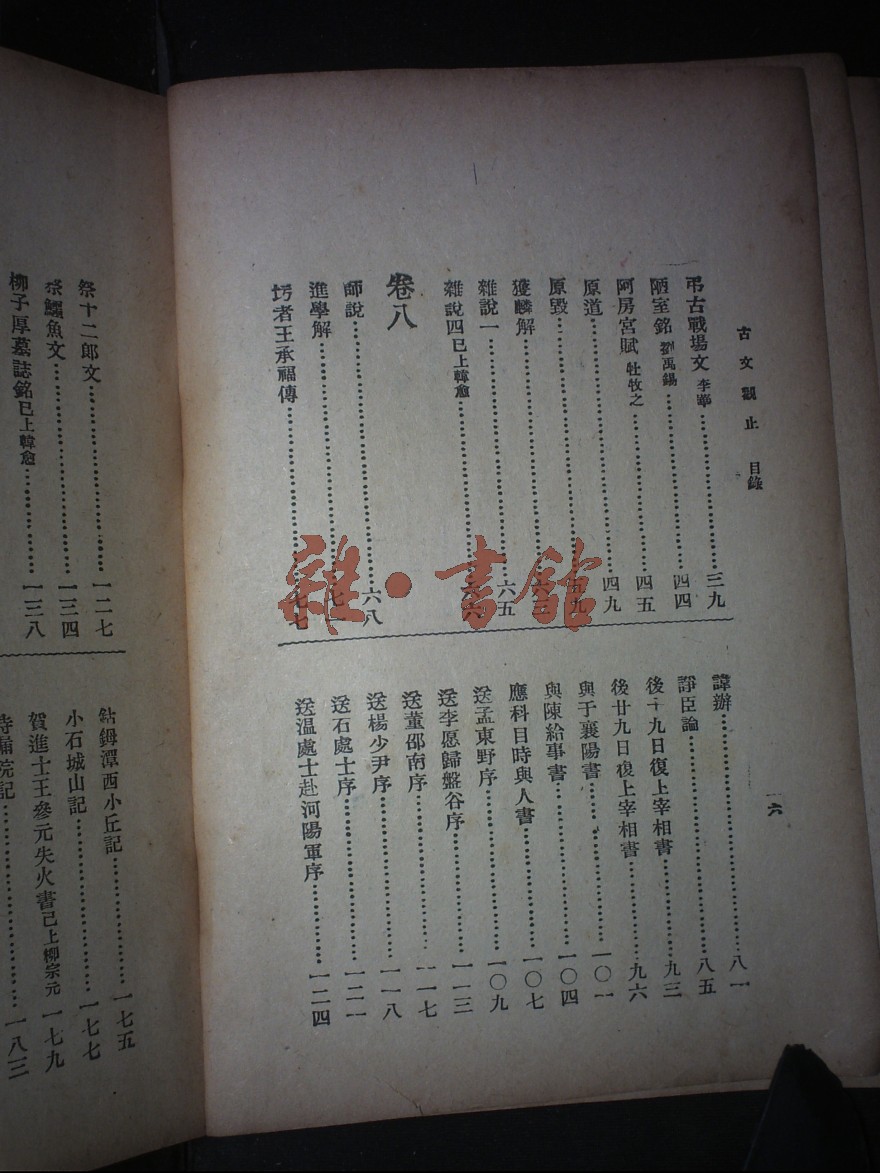 古文觀止 目錄
一六
弔古戰場文 李華 三九
陋室銘 劉禹錫 四四
阿房宮賦 杜牧之 四五
原道 四九
原毀 五九
獲麟解 六三
雜說一 六五
雜說四 已上韓愈 六六
卷八
師說 六八
進學解 七一
圬者王承福傳 七七
諱辦 八一
諍臣論 八五
後十九日復上宰相書 九三
後廿九日復上宰相書 九六
與于襄陽書 一〇一
與陳給事書 一〇四
應科目時與人書 一〇七
送孟東野序 一〇九
送李愿歸盤谷序 一一三
送董邵南序 一一七
送楊少尹序 一一八
送石處士序 一二一
送温處士赴河陽軍序 一二四
祭十二郎文 一二七
祭鱷魚文 一三四
柳子厚墓誌銘 已上韓愈 一三八
鈷鉧潭西小丘記 一七五
小石城山記 一七七
賀進士王參元失火書 已上柳宗元 一七九
待漏院記 一八三
雜·書館